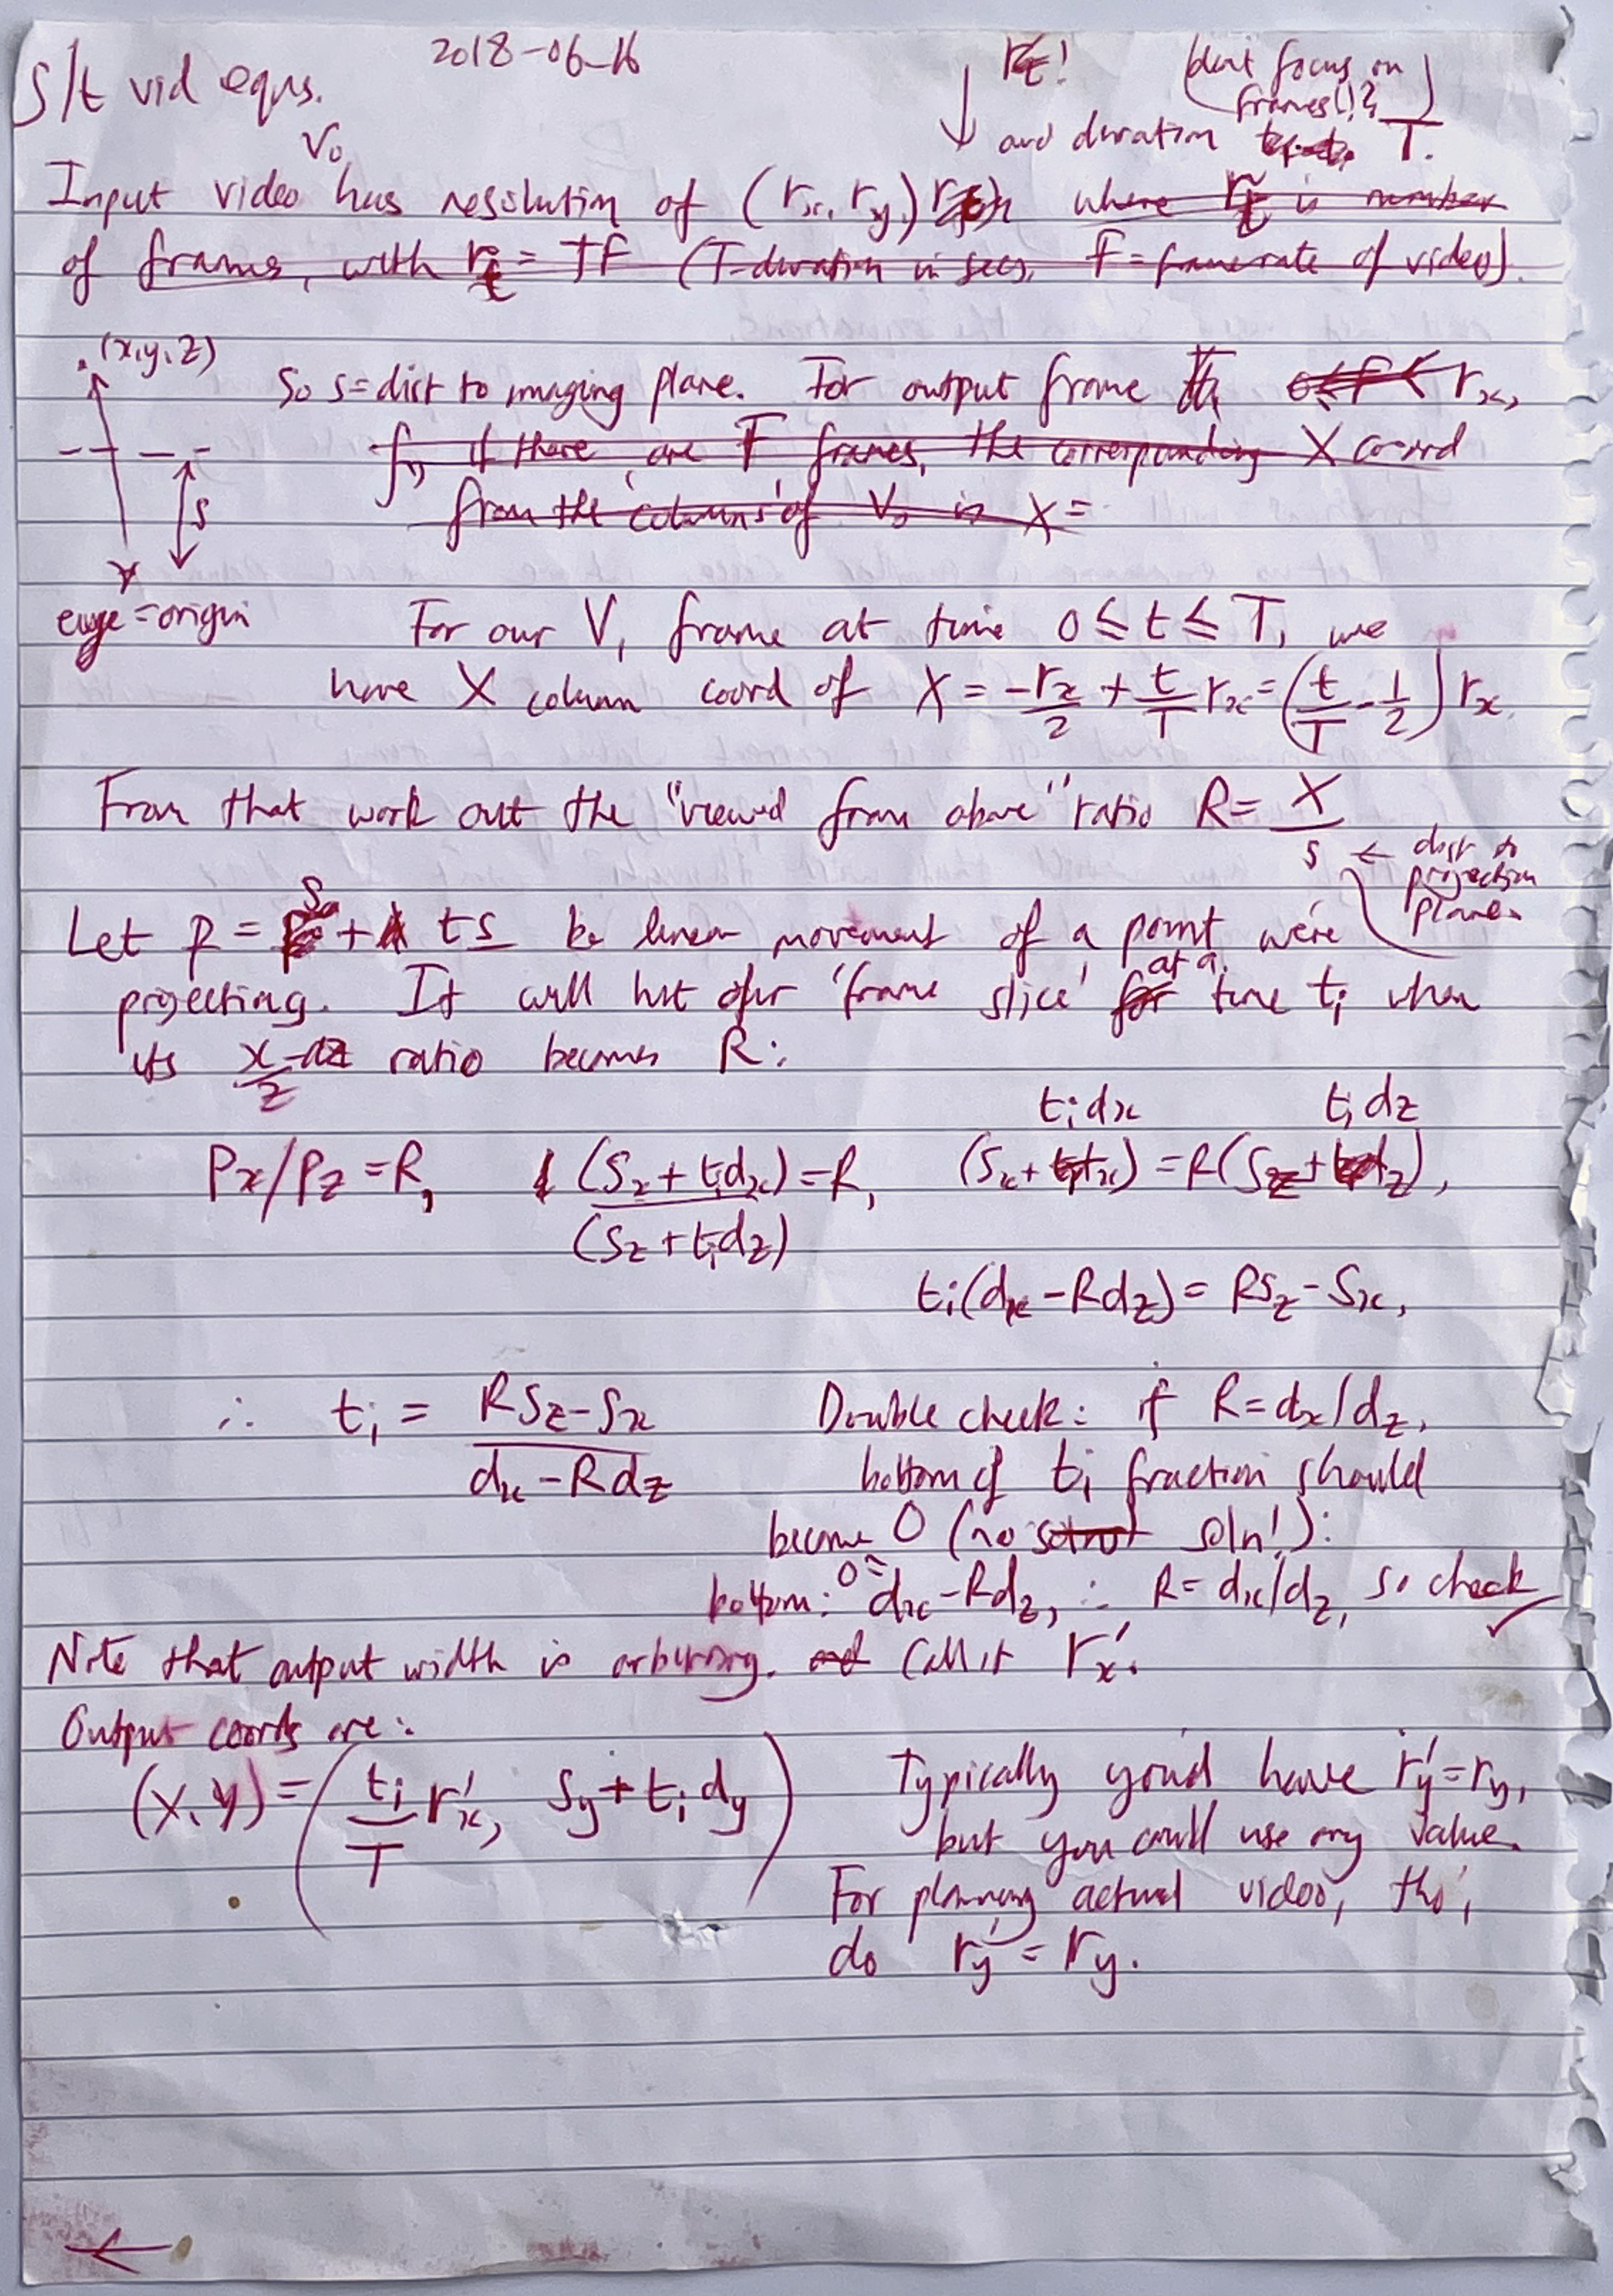 S/t vid eqns. 2018-06-16
(don't focus on
frames(!?)
and duration T.
V₀
Input video has resolution of (rx, ry) where rt is number
of frames, with rt = TF (T=duration in secs, F = framerate of video).
(x,y,z)
So s = dist to imaging plane. For output frame 0 ≤ F < rx,
f, if there are F frames, the corresponding X coord
from the 'columns' of V₀ is X =
s
eye = origin
For our V₁ frame at time 0 ≤ t ≤ T, we
have X column coord of X = -rx/2 + t/T rx = (t/T - 1/2) rx.
From that work out the "viewed from above" ratio R = X/s
← dist to
projection
plane.
Let p = s + ts be linear movement of a point we're
projecting. It will hit our 'frame slice' at a time ti when
its x/z ratio becomes R:
ti dx ti dz
Px/Pz = R, (Sx + ti dx)/(Sz + ti dz) = R, (Sx + ) = R(Sz + ),
ti(dx - Rdz) = RSz - Sx,
∴ ti = (RSz - Sx)/(dx - Rdz)
Double check: if R = dx/dz,
bottom of ti fraction should
become 0 (no soln!):
bottom: 0 = dx - Rdz, ∴ R = dx/dz, so check ✓
Note that output width is arbitrary. and Call it r'x.
Output coords are:
(x, y) = (ti/T r'x, Sy + ti dy)
Typically you'd have r'y = ry,
but you could use any value.
For planning actual video, tho',
do r'y = ry.
←